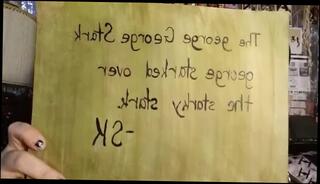 The george George Stark
george starked over
the starky stark.
-SK